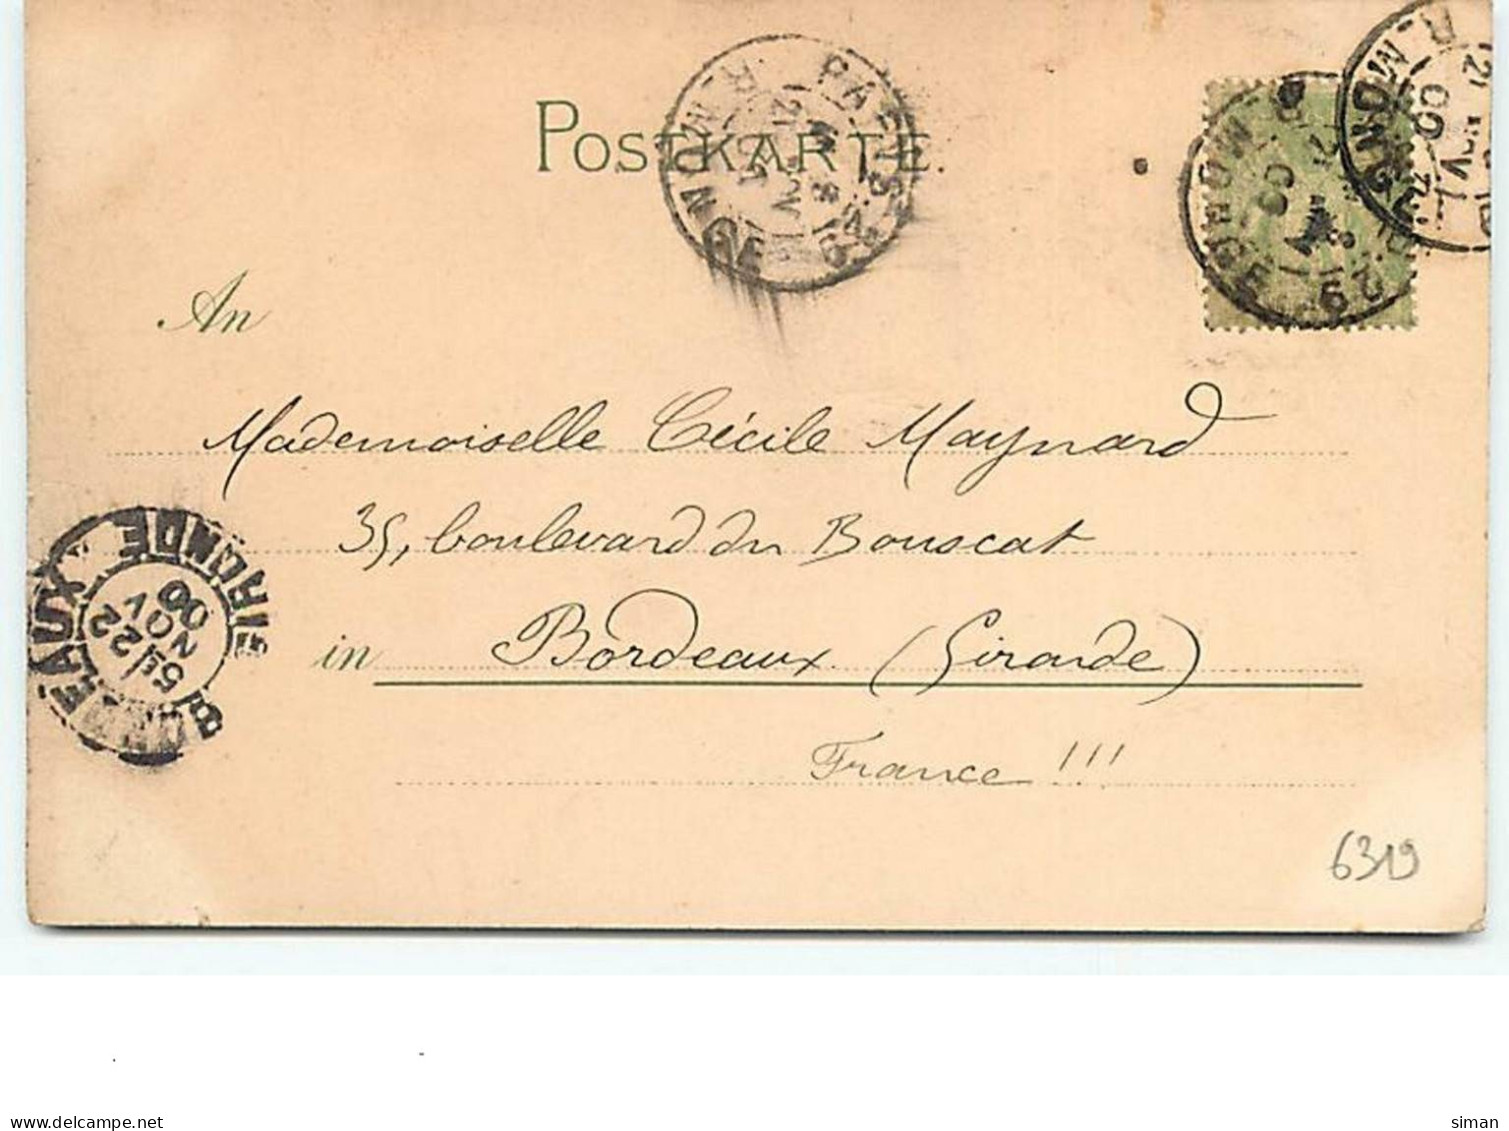 POSTKARTE.
PARIS
R. MONGE
R. MONGE
R. MONGE
An
Mademoiselle Cécile Maynard
35, boulevard du Bouscat
in Bordeaux (Gironde)
France !!!
BORDEAUX GIRONDE
22
NOV
00
6319
www.delcampe.net
siman